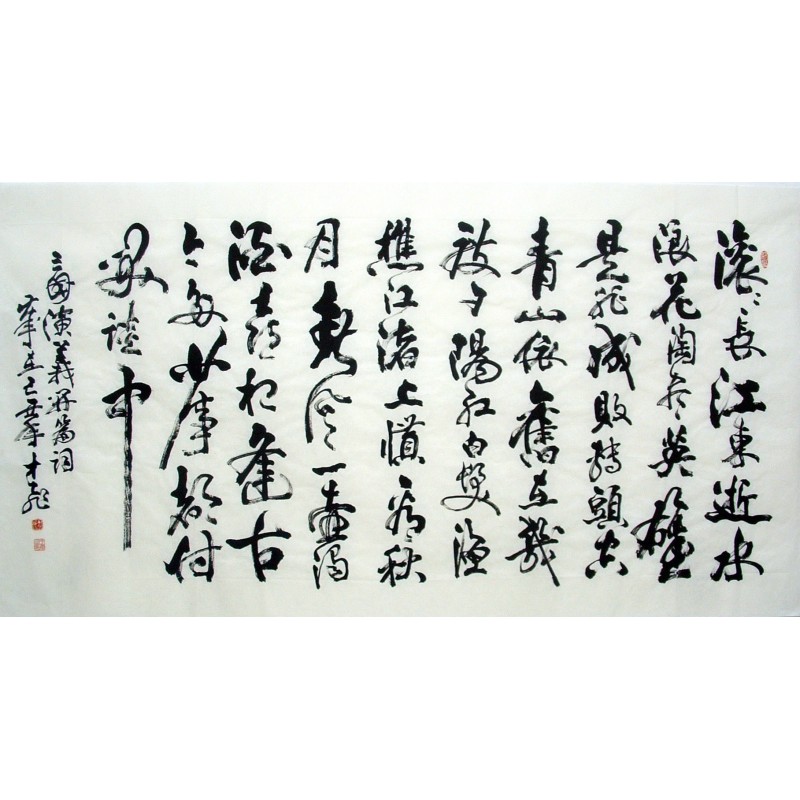 滚〻长江东逝水
浪花淘尽英雄
是非成败转头空
青山依旧在几
度夕阳红白发渔
樵江渚上惯看秋
月春风一壶浊
酒喜相逢古
今多少事都付
笑谈中
三国演义开篇词